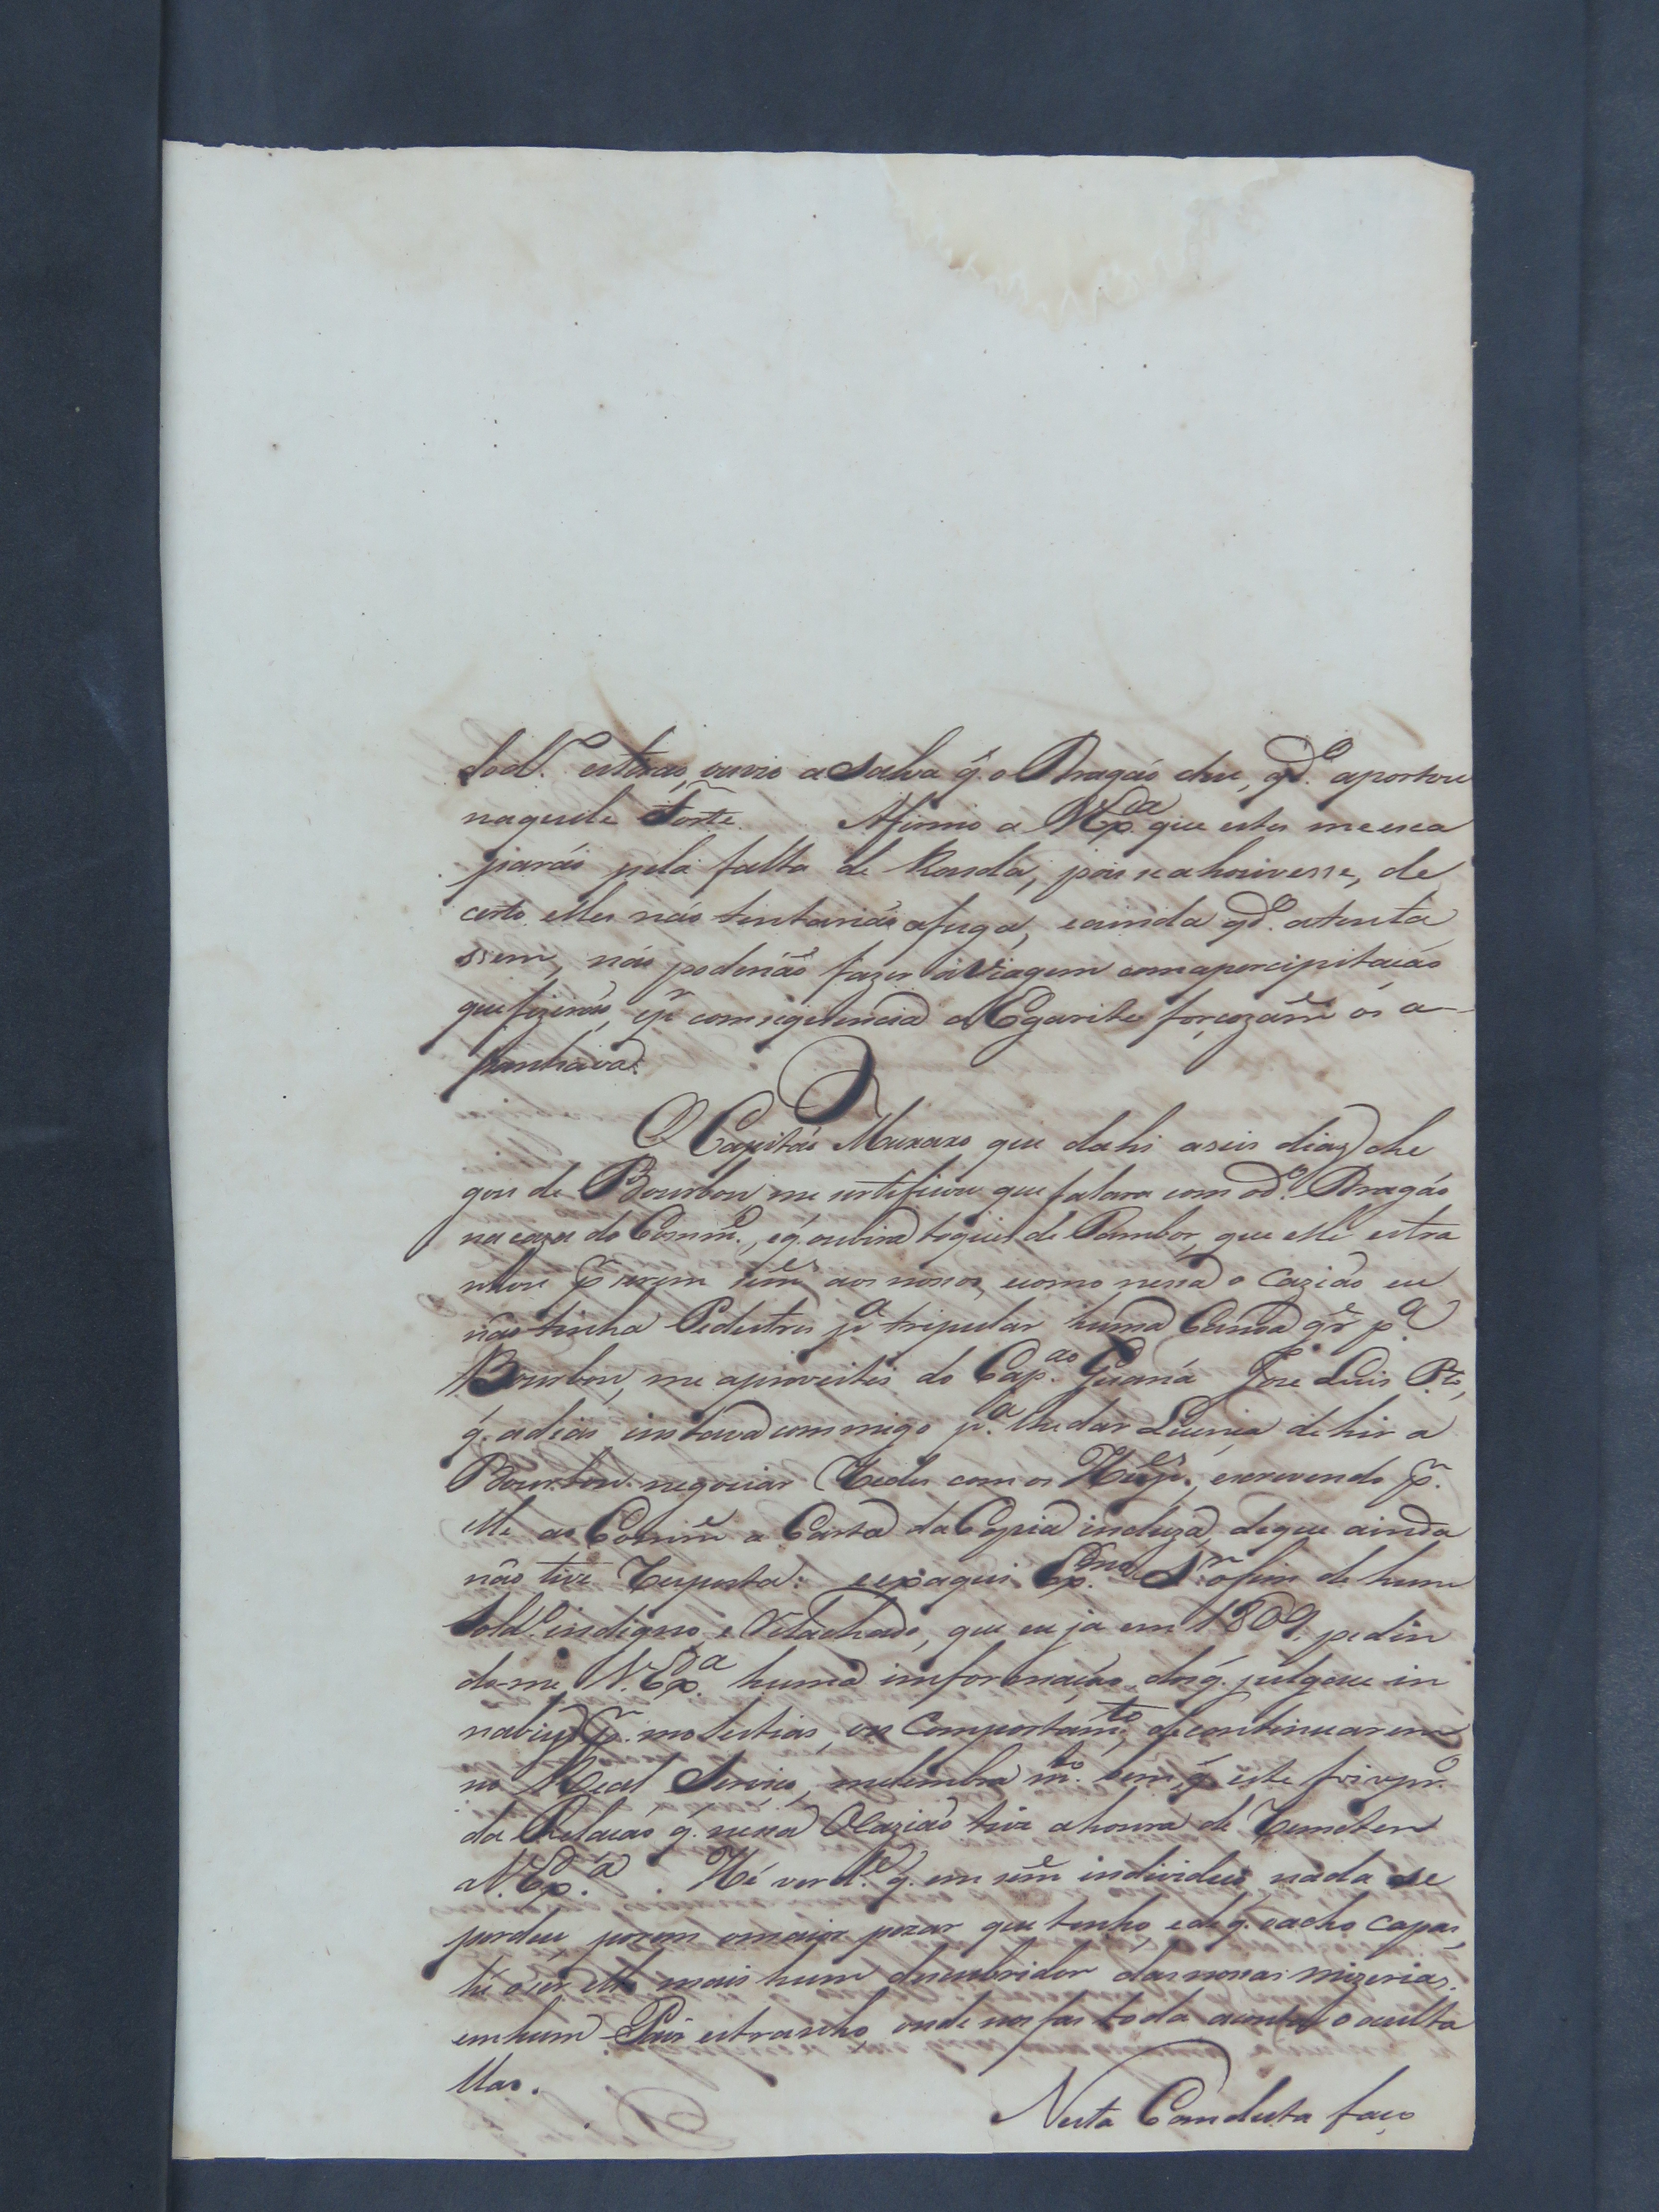 Sold.º estivão, ouvio a Salva q̃. o Dragão deu, qd.º aportou
naquele Forte. Afirmo a V.Ex.ª que estes me esca
parão pela falta de Ronda, pois se a houvesse, de
certo elles não tentarião afuga, e ainda qd.º atenta
ssem, não poderião fazer a Viagem com apercipitação
que fizerão, e pr consequencia a Egarite forcozam.e os a-
panhava.
O Capitão Maxaxo que dahi aseis dias che
gou de Bourbon me sertificou que falara com o d.º Dragão
na caza do Comm.e, e q̃. ouvira toques de Tambor, que elle estra
nhou pr serem sem.es aos nossos, e como nessa o cazião eu
não tinha Pedestres p.ª tripular huma Canoa q̃ p.ª
Bourbon, me aproveitei do Cap.ão Guaná Joze Luis P.to,
q̃. a dias instava com migo p.ª lhe dar Licença de hir a
Bourbon negociar Redes com os Hesp.es, escrevendo pr.
elle ao Comm.e a Carta da Copia incluza, de que ainda
não tive Resposta: e eis aqui Ex.mo Sr. o fim de hum
Sold.º indigno, e Relachado, que eu ja em 1809. pedin
do-me V.Ex.ª huma imformação dos q̃. julgase in
nabeis pr. molestias, ou Comportam.to, de continuarem
no Real Serviço, melembra m.to bem, q̃ este foi o pr.º
da Relação q̃. nessa Ocazião tive a honra de Remeter
a V.Ex.ª. Hé verd.e q̃. em sem.e individuo nada se
perdeu porem o maior pezar que tenho, e de q̃. o acho capas,
hé o ser elle mais hum descubridor das nossas mizerias
em hum Pais estranho, onde nos fas toda aconta o oculta
llas.
Nesta Conduta faço